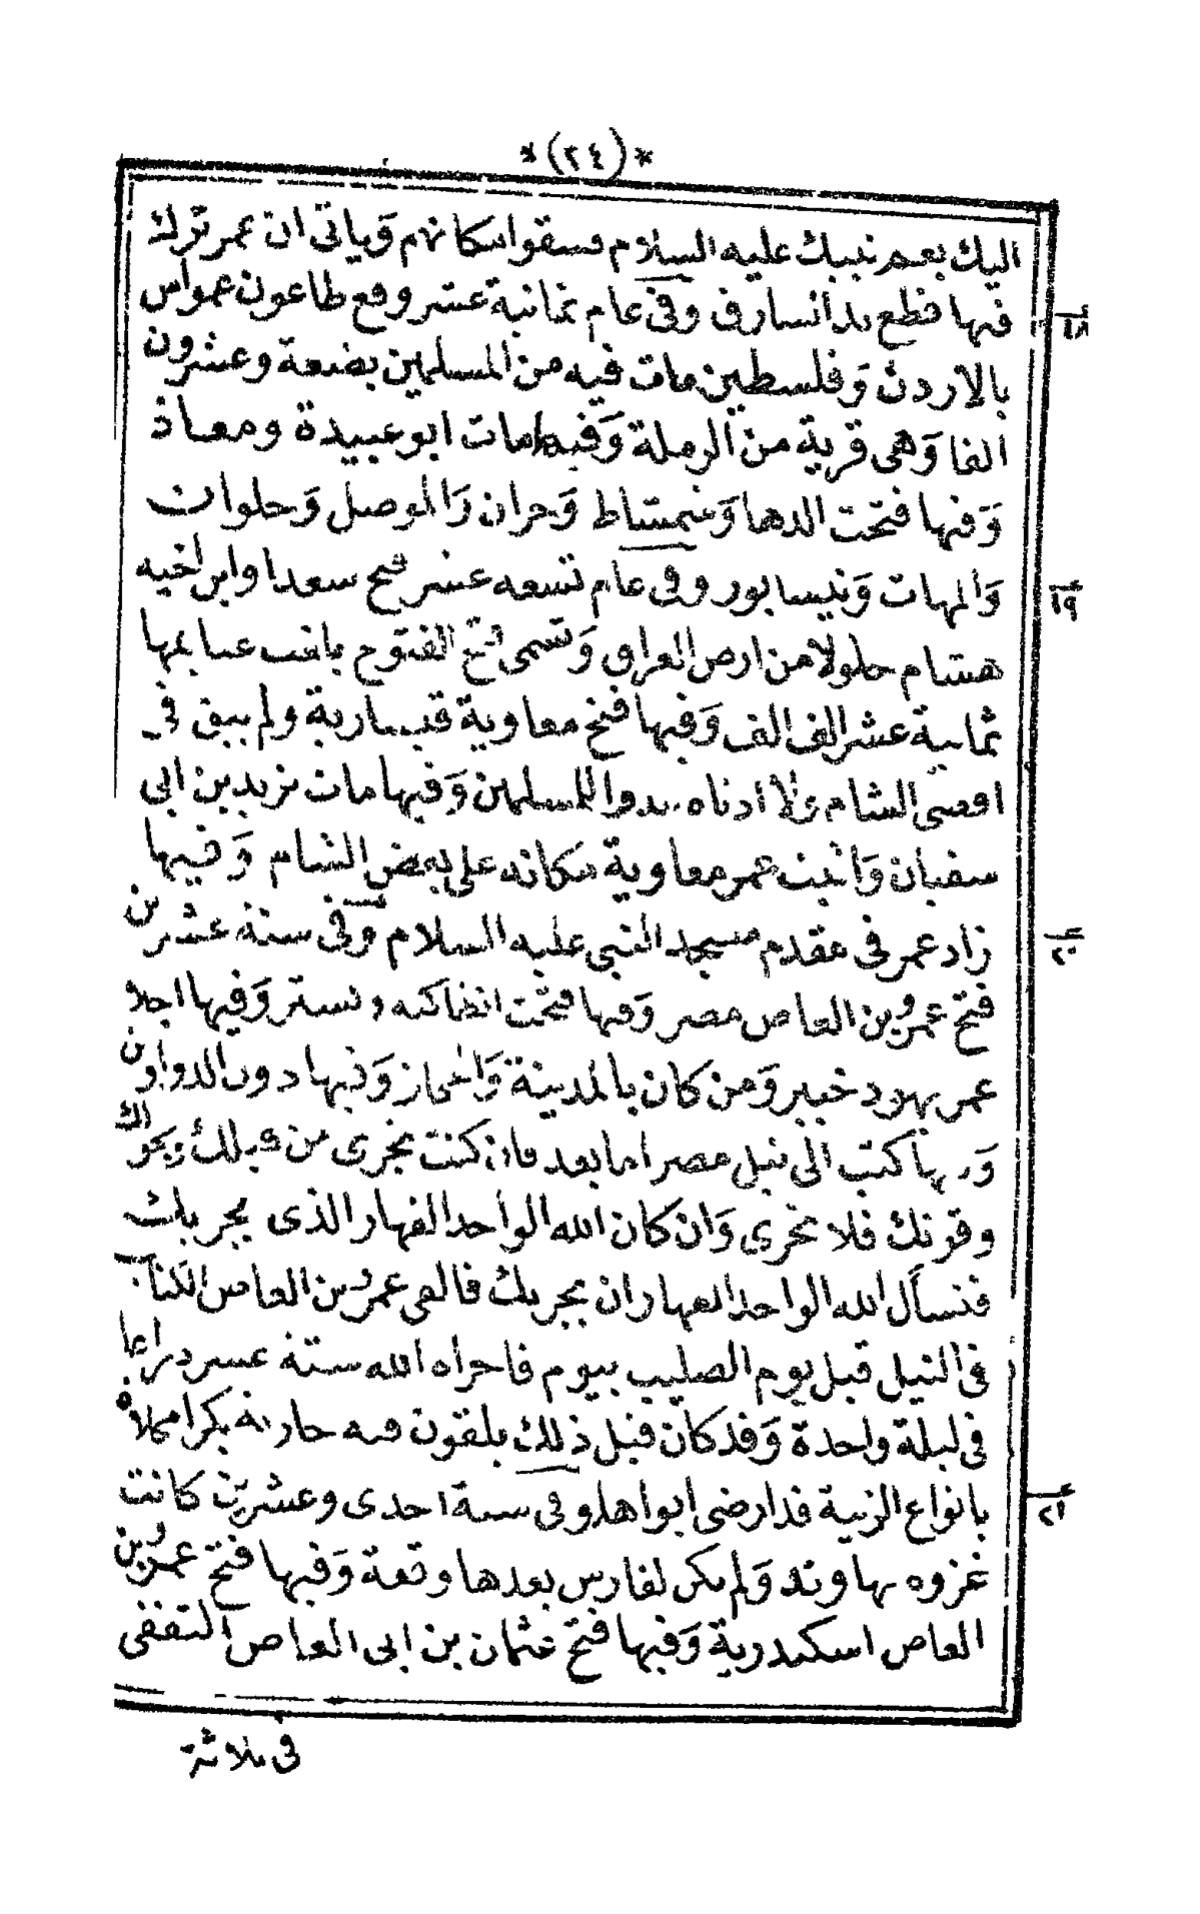 *(٢٤)*
اليك بعم نبيك عليه السلام فسقوا مكانهم وياتى ان عمر ترك
فيها قطع يد السارق وفى عام ثمانية عشر وقع طاعون عمواس
بالاردن وفلسطين مات فيه من المسلمين بضعة وعشرون
الفا وهى قرية من الرملة وفيها مات ابو عبيدة ومعاذ
وفيها فتحت الرها وشمشاط وحران والموصل وحلوان
والمهات ونيسابور وفى عام تسعه عشر فتح سعد وابن اخيه
هشام جلولا من ارض العراق وتسمى فتح الفتوح بلغت غنايمها
ثمانية عشر الف الف وفيها فتح معاوية قيسارية ولم يبق فى
اقصى الشام ولا ادناه عدو للمسلمين وفيها مات يزيد بن ابى
سفيان واثبت عمر معاوية مكانه على بعض الشام وفيها
زاد عمر فى مقدم مسجد النبى عليه السلام وفى سنة عشرين
فتح عمرو بن العاص مصر وفيها فتحت انطاكيه وتستر وفيها اجلا
عمر يهود خيبر ومن كان بالمدينة والحجاز وفيها دون الدواوين
وفيها كتب الى نيل مصر اما بعد فان كنت تجرى من قبلك وبحولك
وقوتك فلا تجرى وان كان الله الواحد القهار الذى يجريك
فنسأل الله الواحد القهار ان يجريك فالقى عمرو بن العاص الكتاب
فى النيل قبل يوم الصليب بيوم فاجراه الله ستة عشر ذراعا
فى ليلة واحدة وقد كان قبل ذلك يلقون فيه جارية بكرا محلاة
بانواع الزينة قد ارضى ابواها وفى سنة احدى وعشرين كانت
غزوه نهاوند ولم يكن لفارس بعدها وقعة وفيها فتح عمرو بن
العاص اسكندرية وفيها فتح عثمان بن ابى العاص الثقفى
فى ثلاثة
١٨
١٩
٢٠
٢١